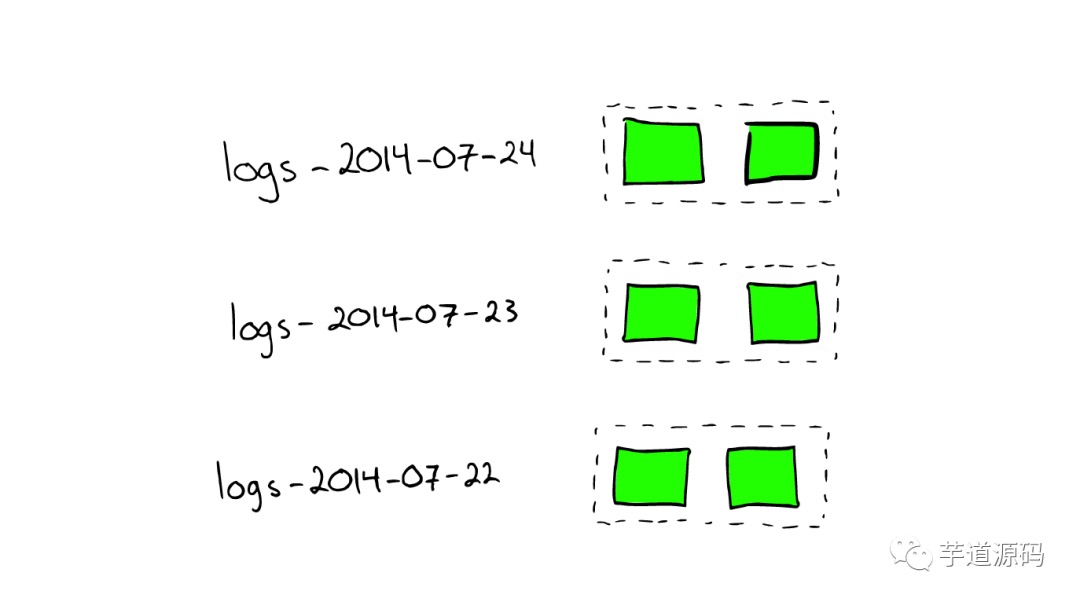 logs-2014-07-24
logs-2014-07-23
logs-2014-07-22
芋道源码